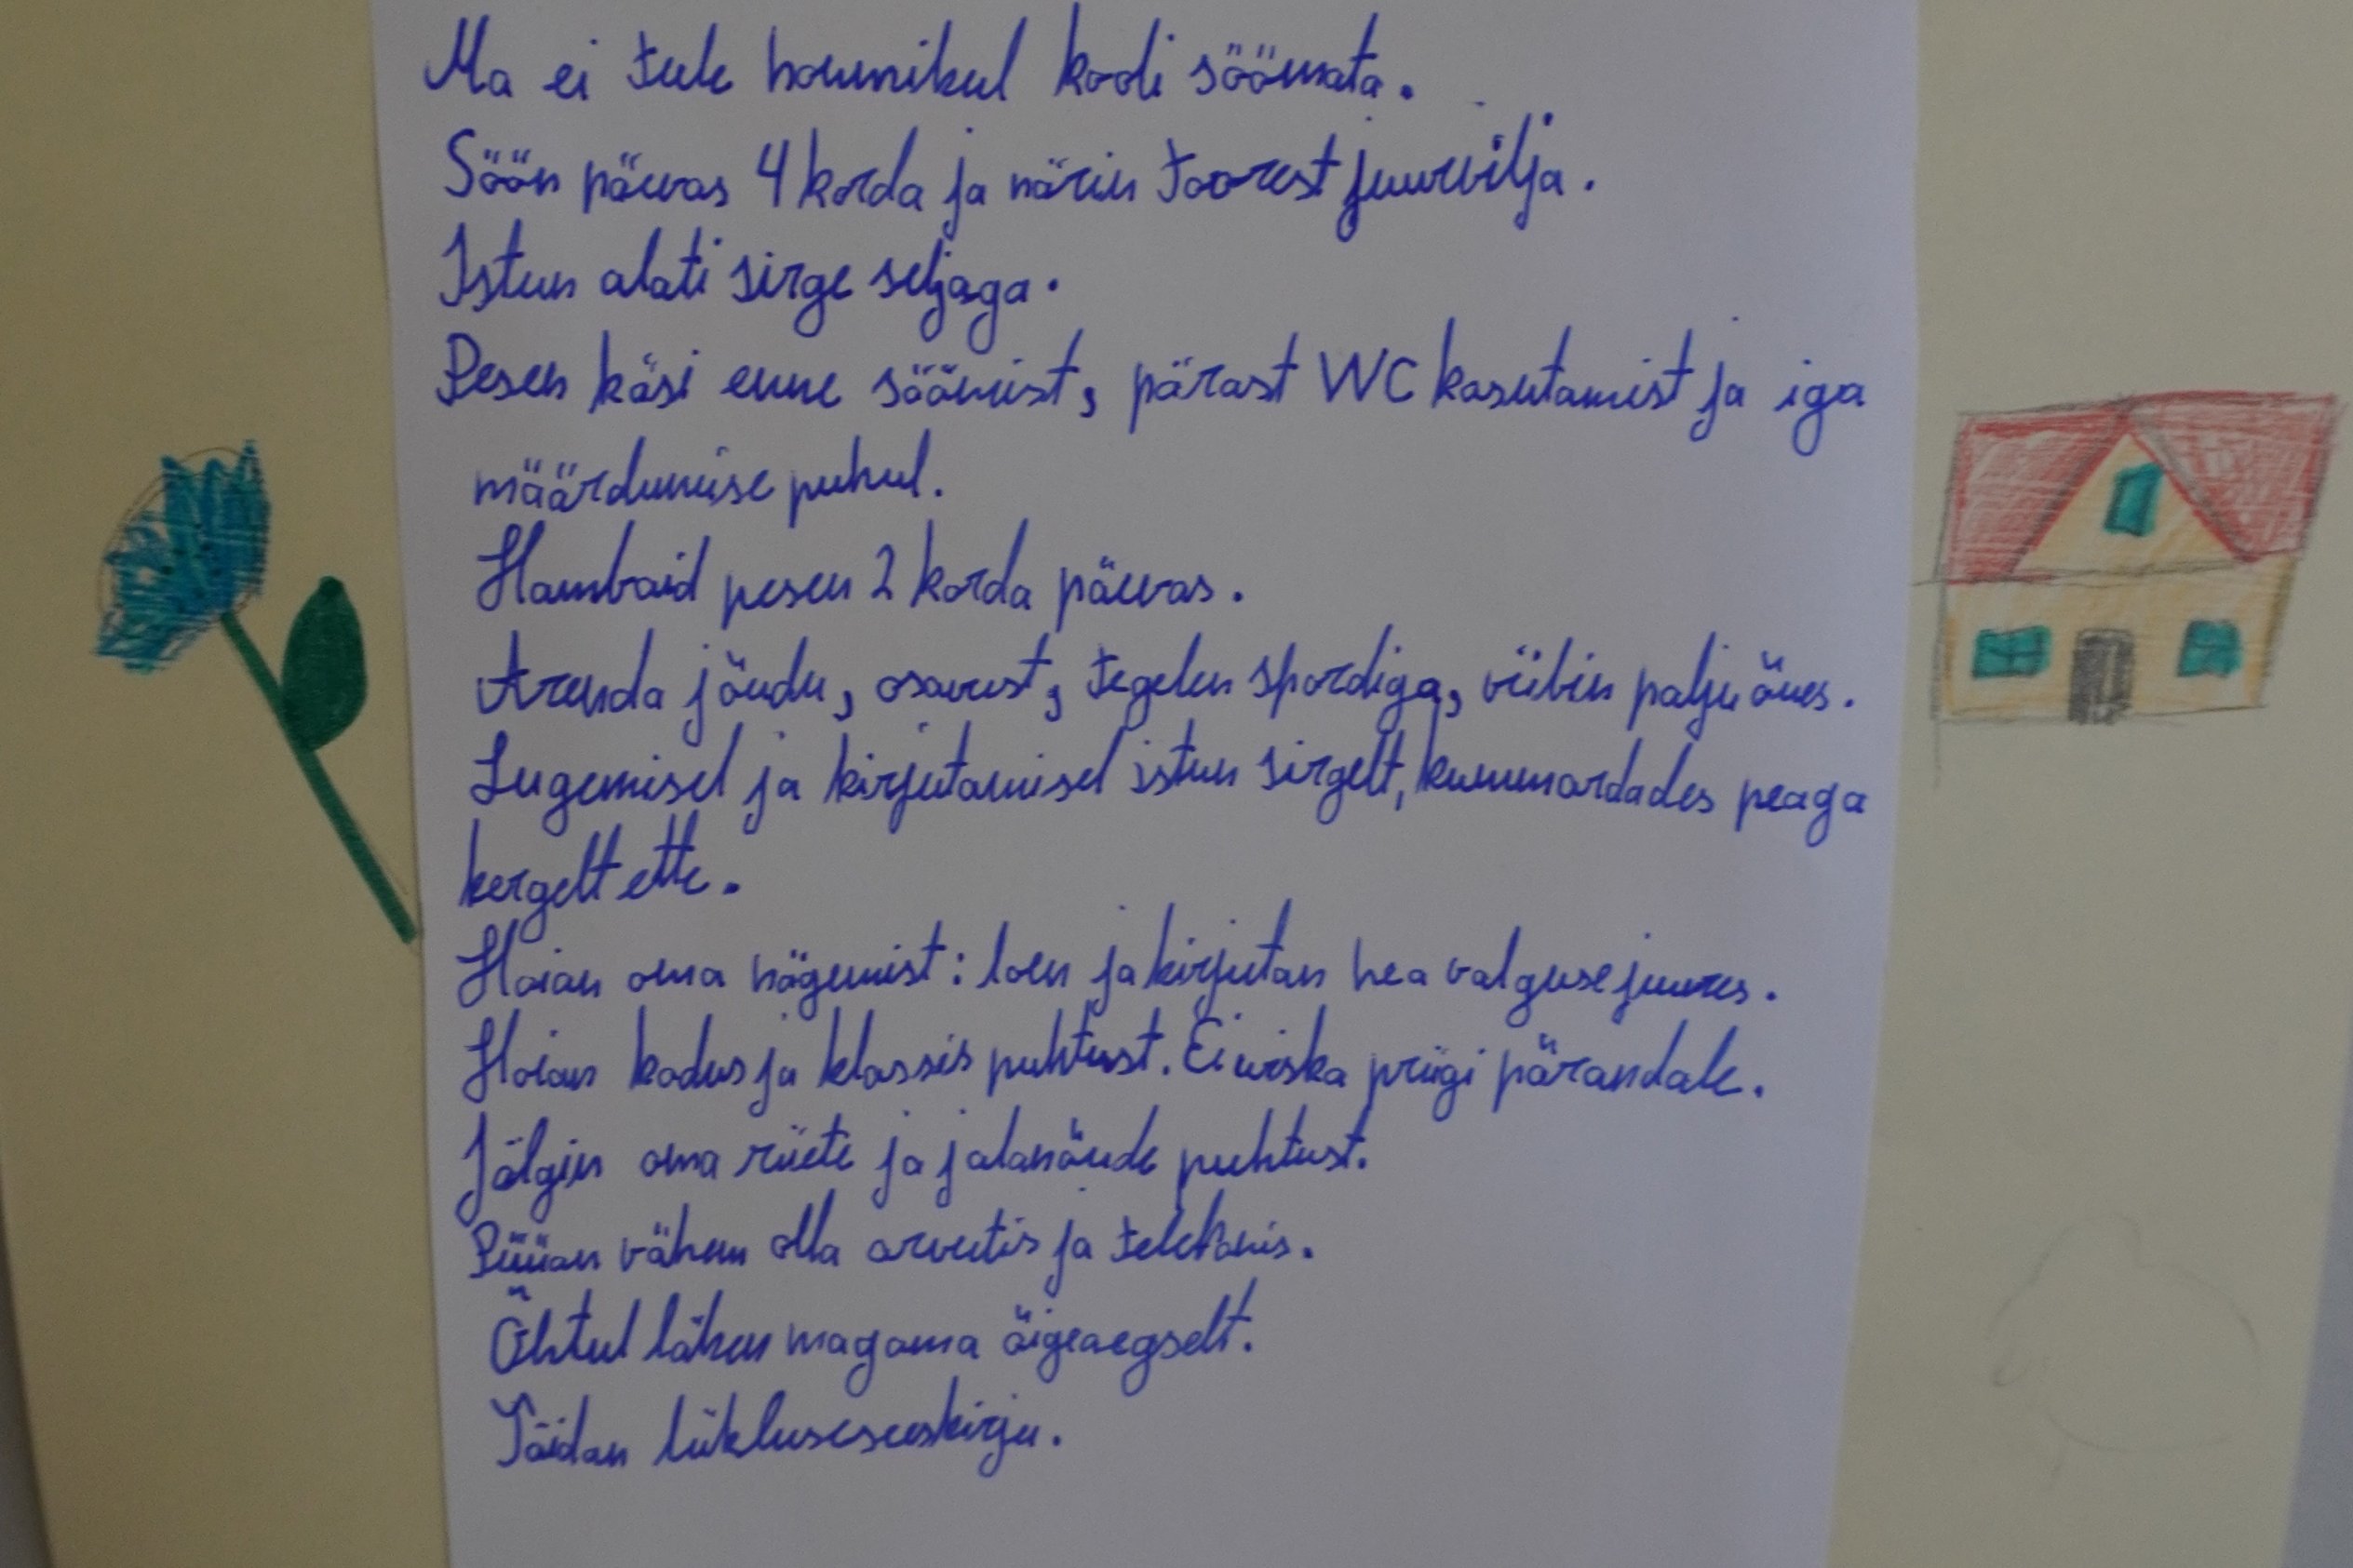 Ma ei tule hommikul kooli söömata.
Söön päevas 4 korda ja närin toorest juurvilja.
Istun alati sirge seljaga.
Pesen käsi enne söömist, pärast WC kasutamist ja iga
määrdumise puhul.
Hambaid pesen 2 korda päevas.
Arenda jõudu, osavust, tegelen spordiga, viibin palju õues.
Lugemisel ja kirjutamisel istun sirgelt, kummardades peaga
kergelt ette.
Hoian oma nägemist: loen ja kirjutan hea valguse juures.
Hoian kodus ja klassis puhtust. Ei viska prügi põrandale.
Jälgin oma riiete ja jalanõude puhtust.
Püüan vähem olla arvutis ja telefonis.
Õhtul lähen magama õigeaegselt.
Täidan liikluseeskirju.